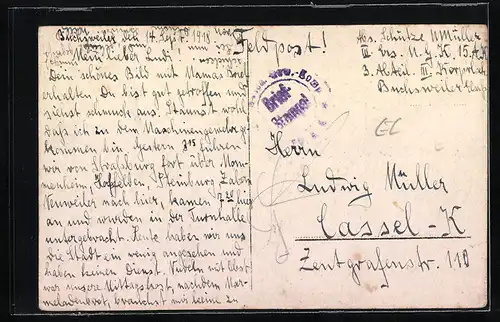 Buchsweiler den 14. Sept. 1918
Mein lieber Ludi!
Dein schönes Bild mit Mamas Brief
erhalten. Du bist gut getroffen und
siehst schmuck aus. Staunst wohl
daß ich zu dem Maschinengewehre
gekommen bin. Gestern 3 15 fuhren
wir von Straßburg fort über Mom-
menheim, Hochfelden, Steinburg, Zabern
Neuweiler nach hier, kamen 7 30 hier
an und wurden in der Turnhalle
untergebracht. Heute haben wir uns
die Stadt ein wenig angesehen und
haben keinen Dienst. Nudeln mit Obst
war unsere Mittagskost, nachdem Mar-
meladenbrot, brauchst mir keine zu
Feldpost!
Abs. Schütze Müller
III Ers. M. G. K. 15. A.K.
3. Abteil. III Korpralsch.
Buchsweiler Elsaß
Brief-
Stempel
EL
Herrn
Ludwig Müller
Cassel-K
Zentgrafenstr. 110